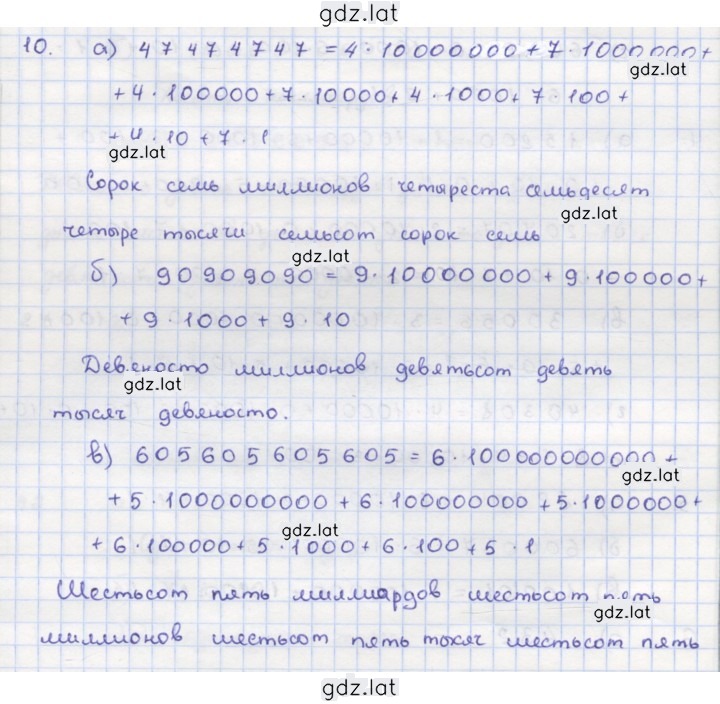 gdz.lat
10. а) 47 47 4 7 47 = 4·10000000 + 7·1000000 +
gdz.lat
+ 4·100000 + 7·10000 + 4·1000 + 7·100 +
+ 4·10 + 7·1
gdz.lat
Сорок семь миллионов четыреста семьдесят
gdz.lat
четыре тысячи семьсот сорок семь
gdz.lat
б) 90909090 = 9·10000000 + 9·100000 +
+ 9·1000 + 9·10
Девяносто миллионов девятьсот девять
gdz.lat
тысяч девяносто.
в) 605605605605 = 6·100000000000 +
gdz.lat
+ 5·1000000000 + 6·100000000 + 5·1000000 +
gdz.lat
+ 6·100000 + 5·1000 + 6·100 + 5·1
Шестьсот пять миллиардов шестьсот пять
gdz.lat
миллионов шестьсот пять тысяч шестьсот пять
gdz.lat